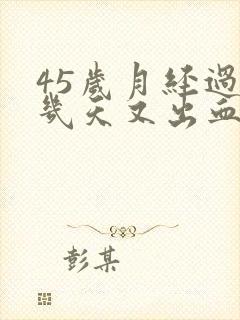 45歲月经過
幾天又出血
彭某